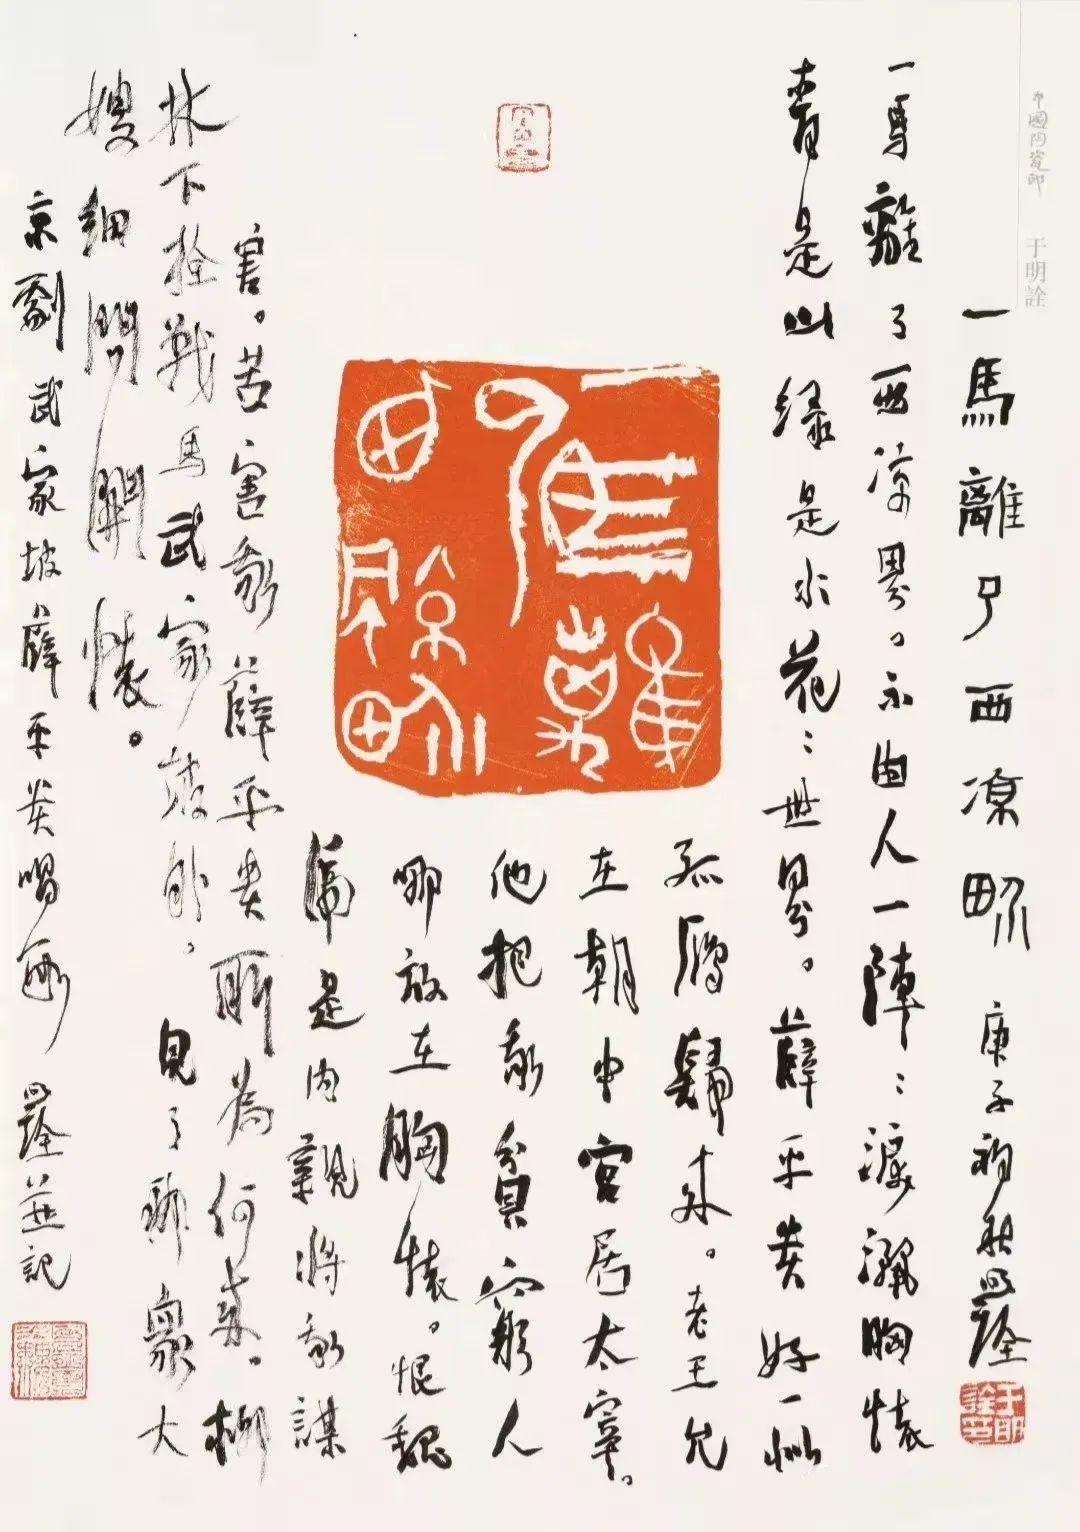 中國陶瓷印 于明詮
一馬離了西凉界 庚子初秋明詮
于明詮印
一馬離了西凉界。不由人一陣〻淚灑胸懷
青是山綠是水花〻世界。薛平貴好一似
孤雁歸來。老王允
在朝中官居太宰。
他把我貧窮人
哪放在胸懷。恨魏
虎是内親將我謀
害。苦害我薛平貴所為何來。柳
林下拴戰馬武家坡外。見了那眾大
嫂細問開懷。
京劇武家坡薛平貴唱段 明詮並記